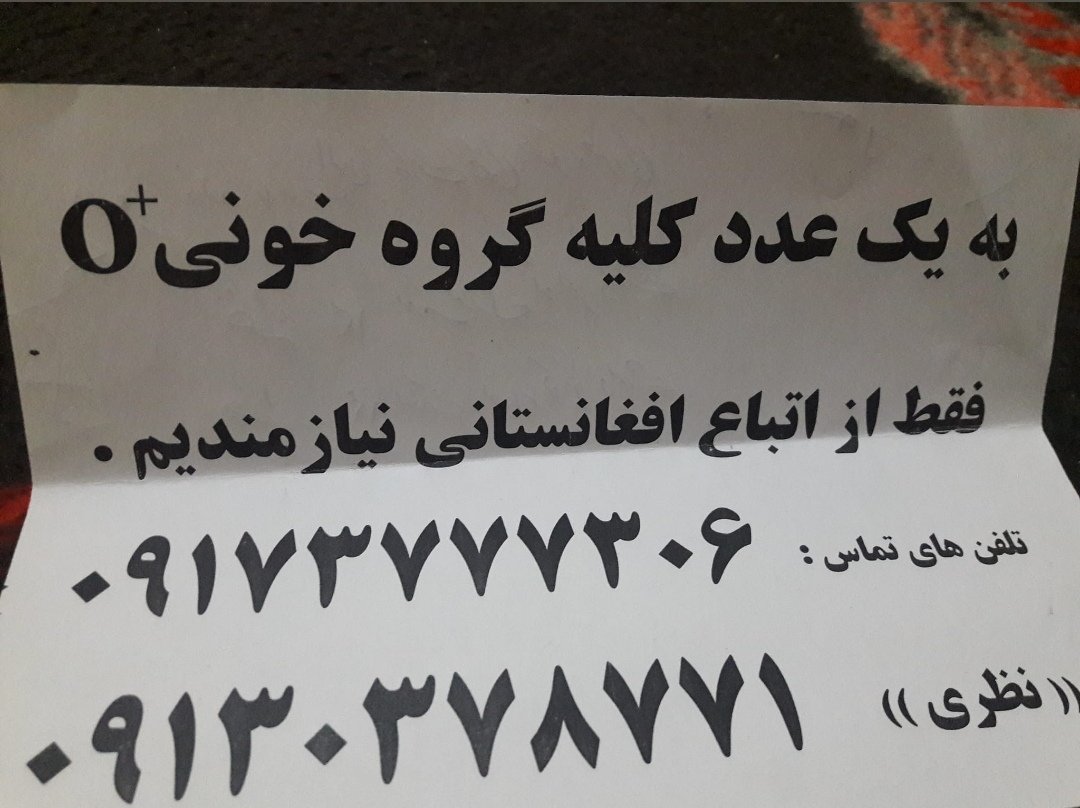 به یک عدد کلیه گروه خونی O+
فقط از اتباع افغانستانی نیازمندیم .
تلفن های تماس : ۰۹۱۷۳۷۷۷۳۰۶
۰۹۱۳۰۳۷۸۷۷۱ (( نظری ))